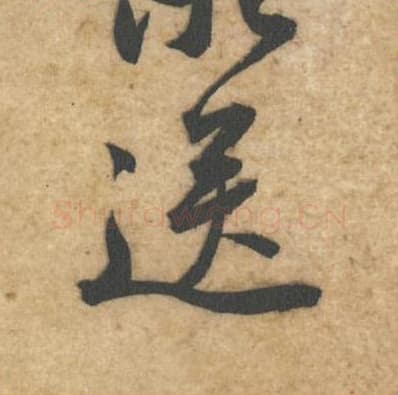 送
Shufawang.CN